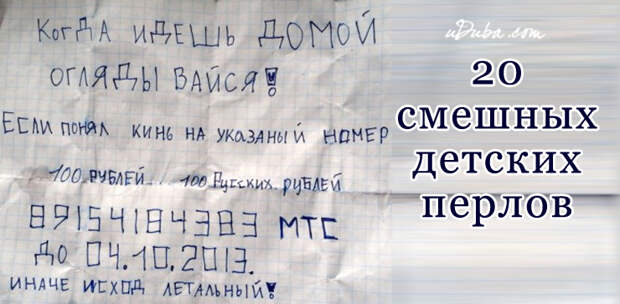 КогДА ИДЕШЬ ДОМОЙ
ОГЛЯДЫВАЙСЯ!
ЕСЛИ ПОНЯЛ КИНЬ НА УКАЗАНЫЙ НОМЕР
100 РУБЛЕЙ... 100 РУССКИХ РУБЛЕЙ
89154184383 МТС
ДО 04.10.2013.
ИНАЧЕ ИСХОД ЛЕТАЛЬНЫЙ!
uDuba.com
20
смешных
детских
перлов